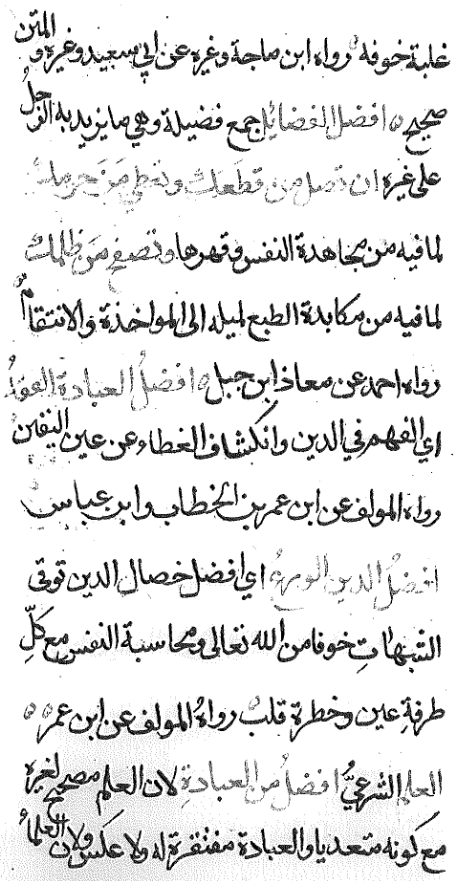 غلبة خوفه رواه ابن ماجة وغيره عن ابي سعيد وغيره والمتن
صحيح افضل الفضائل جمع فضيلة وهي ما يزيد به الرجل
على غيره ان تصل من قطعك وتعطي مَن حرمك
لما فيه من مجاهدة النفس وقهرها وتصفح عمن ظلمك
لما فيه من مكابدة الطبع لميله الى المواخذة والانتقام
رواه احمد عن معاذ ابن جبل افضلُ العبادة الفقهُ
اي الفهم في الدين وانكشاف الغطاء عن عين اليقين
رواه المولف عن ابن عمر بن الخطاب وابن عباس
افضلُ الدين الورعُ اي افضل خصال الدين توقى
الشبهاتِ خوفا من الله تعالى ومحاسبة النفس مع كلِّ
طرفةِ عين وخطرة قلب رواهُ المولف عن ابن عمر
العلم الشرعيُّ افضلُ من العبادةِ لان العلم مصحح لغيره
مع كونه متعديا والعبادة مفتقرة له ولا عكس ولان العلماءُ